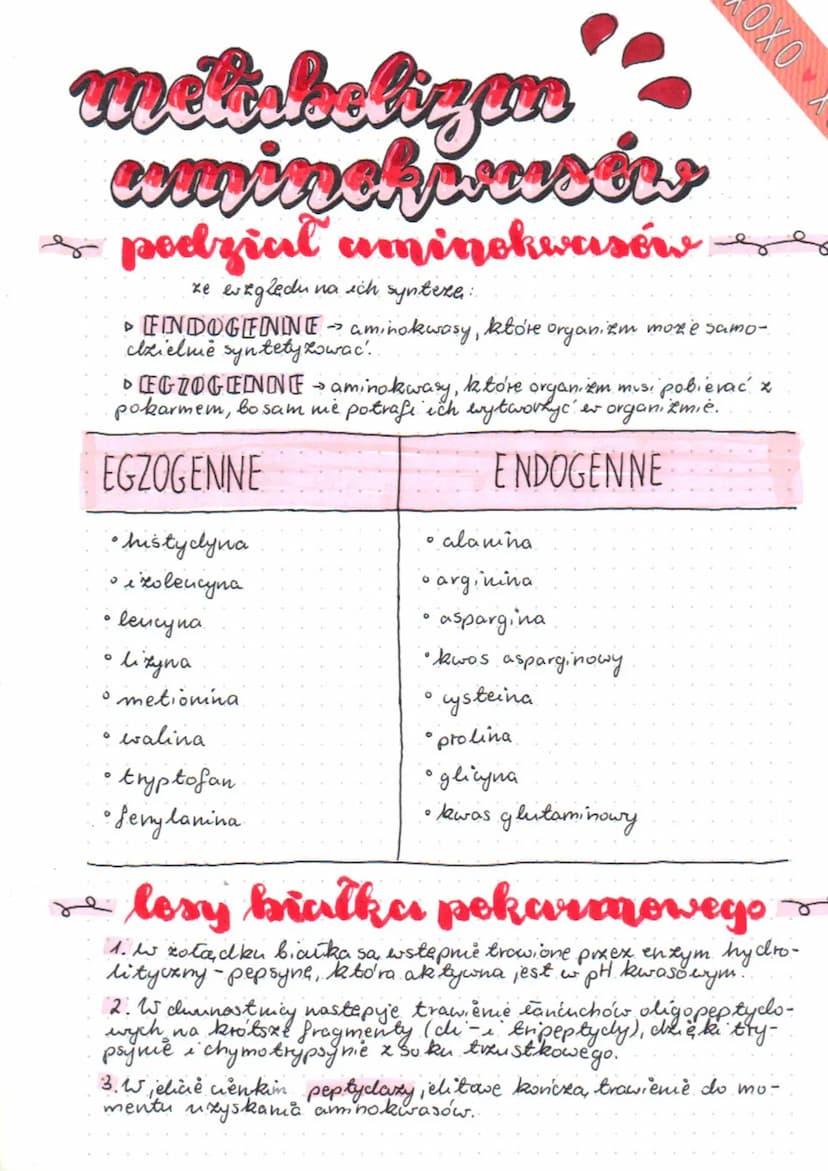 XOXO ♥ X
metabolizm
aminokwasów
podział aminokwasów
ze względu na ich syntezę:
▹ ENDOGENNE → aminokwasy, które organizm może samo-
dzielnie syntetyzować.
▹ EGZOGENNE → aminokwasy, które organizm musi pobierać z
pokarmem, bo sam nie potrafi ich wytworzyć w organizmie.
EGZOGENNE ENDOGENNE
• histydyna • alanina
• izoleucyna • arginina
• leucyna • aspargina
• lizyna • kwas asparginowy
• metionina • cysteina
• walina • prolina
• tryptofan • glicyna
• fenylanina • kwas glutaminowy
losy białka pokarmowego
1. W żołądku białka są wstępnie trawione przez enzym hydro-
lityczny - pepsynę, która aktywna jest w pH kwasowym.
2. W dwunastnicy następuje trawienie łańcuchów oligopeptydo-
wych na krótsze fragmenty (di- i tripeptydy), dzięki try-
psynie i chymotrypsynie z soku trzustkowego.
3. W jelicie cienkim peptydazy jelitowe kończą trawienie do mo-
mentu uzyskania aminokwasów.